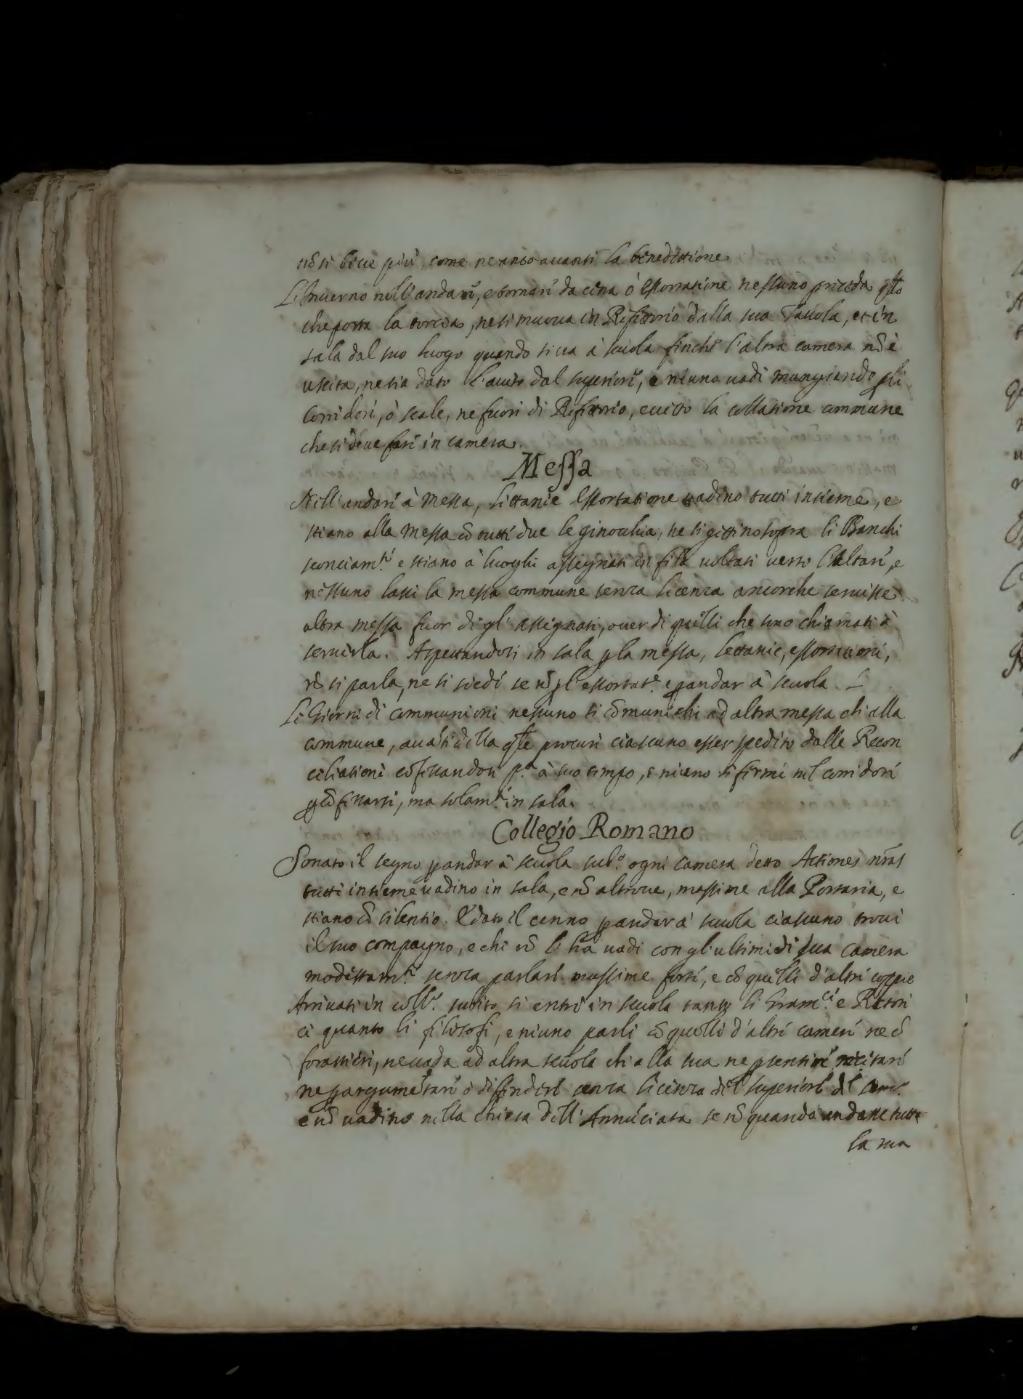 nõ si beue più come ne anco auanti la benedittione.
L'Inuerno nell'andare, e tornare da cena ò essortatione nessuno preceda q̃llo
che porta la torcia, ne si muoua in Refettorio dalla sua Tauola, et in
sala dal suo luogo quando si ua à scuola finche l'altra camera nõ è
uscita, ne sia dato l'auuiso dal superiore, e niuno uadi mangiando p̃ li
Corridori, ò scale, ne fuori di Refettorio, eccetto la collatione commune
che si deue fare in camera.
Messa
Nell'andare à Messa, Littanie essortatione uadino tutti insieme, e
stiano alla Messa cõ tutti due le ginocchia, ne si gettino sopra li Banchi
sconciam.te e stiano à luoghi assegnati in fila uoltati uerso l'Altare, e
nessuno lassi la messa commune senza licenza ancorche seruisse
altra messa fuor degl'assegnati, ouer di quelli che sono chiamati à
seruirla. Aspettandosi in sala p̃ la messa, lettanie, essortationi,
nõ si parla, ne si siede se nõ p̃ l'essortat.e e p̃ andar à scuola.
Li Giorni di communioni nessuno si cõmunichi ad altra messa che alla
commune, auãti della q̃le procuri ciascuno esser spedito dalle Recon
ciliationi cõfessandosi p.a à suo tempo, e niuno si fermi nel corridore
p̃ cõfessarsi, ma solam.te in sala.
Collegio Romano
Sonato il segno p̃ andar à scuola sub.o ogni camera detto Actiones nr̃as
tutti insieme uadino in sala, e nõ altroue, massime alla Portaria, e
stiano cõ silentio. E dato il cenno p̃ andar à scuola ciascuno troui
il suo compagno, e chi nõ l'ha uadi con gl'ultimi di sua camera
modestam.te senza parlare massime forte, e cõ quelli d'altre coppie
Arriuati in coll.o subito si entri in scuola tanto li Gram.ci e Rettori
ci quanto li filosofi, e niuno parli cõ quelli d'altre camere ne cõ
forastieri, ne uada ad altra scuola che alla sua ne p̃ sentire recitare
ne p̃ argumẽtare ò difendere senza licenza del superiore del
e nõ uadino nella chiesa dell'Annũciata se nõ quando andane tutta
la sua